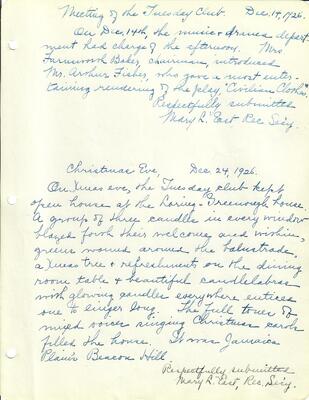 Meeting of the Tuesday Club. Dec. 14, 1926.
On Dec. 14th, the music + drama depart
ment had charge of the afternoon. Mrs
Farnworth Baker, chairman, introduced
Mr. Arthur Fisher, who gave a most enter-
taining rendering of the play, "Civilian Clothes."
Respectfully submitted
Mary L. East Rec. Sec'y.
Christmas Eve, Dec. 24, 1926.
On Xmas eve, the Tuesday club kept
open house at the Loring-Greenough house.
A group of three candles in every window
blazed forth their welcome, and
greens wound around the balustrade,
a Xmas tree + refreshments on the dining
room table + beautiful candelabras
with glowing candles everywhere enticed
one to linger long. The full tones of
mixed voices singing Christmas carols
filled the house. It was Jamaica
Plain's Beacon Hill.
Respectfully submitted
Mary L. East, Rec. Sec'y.